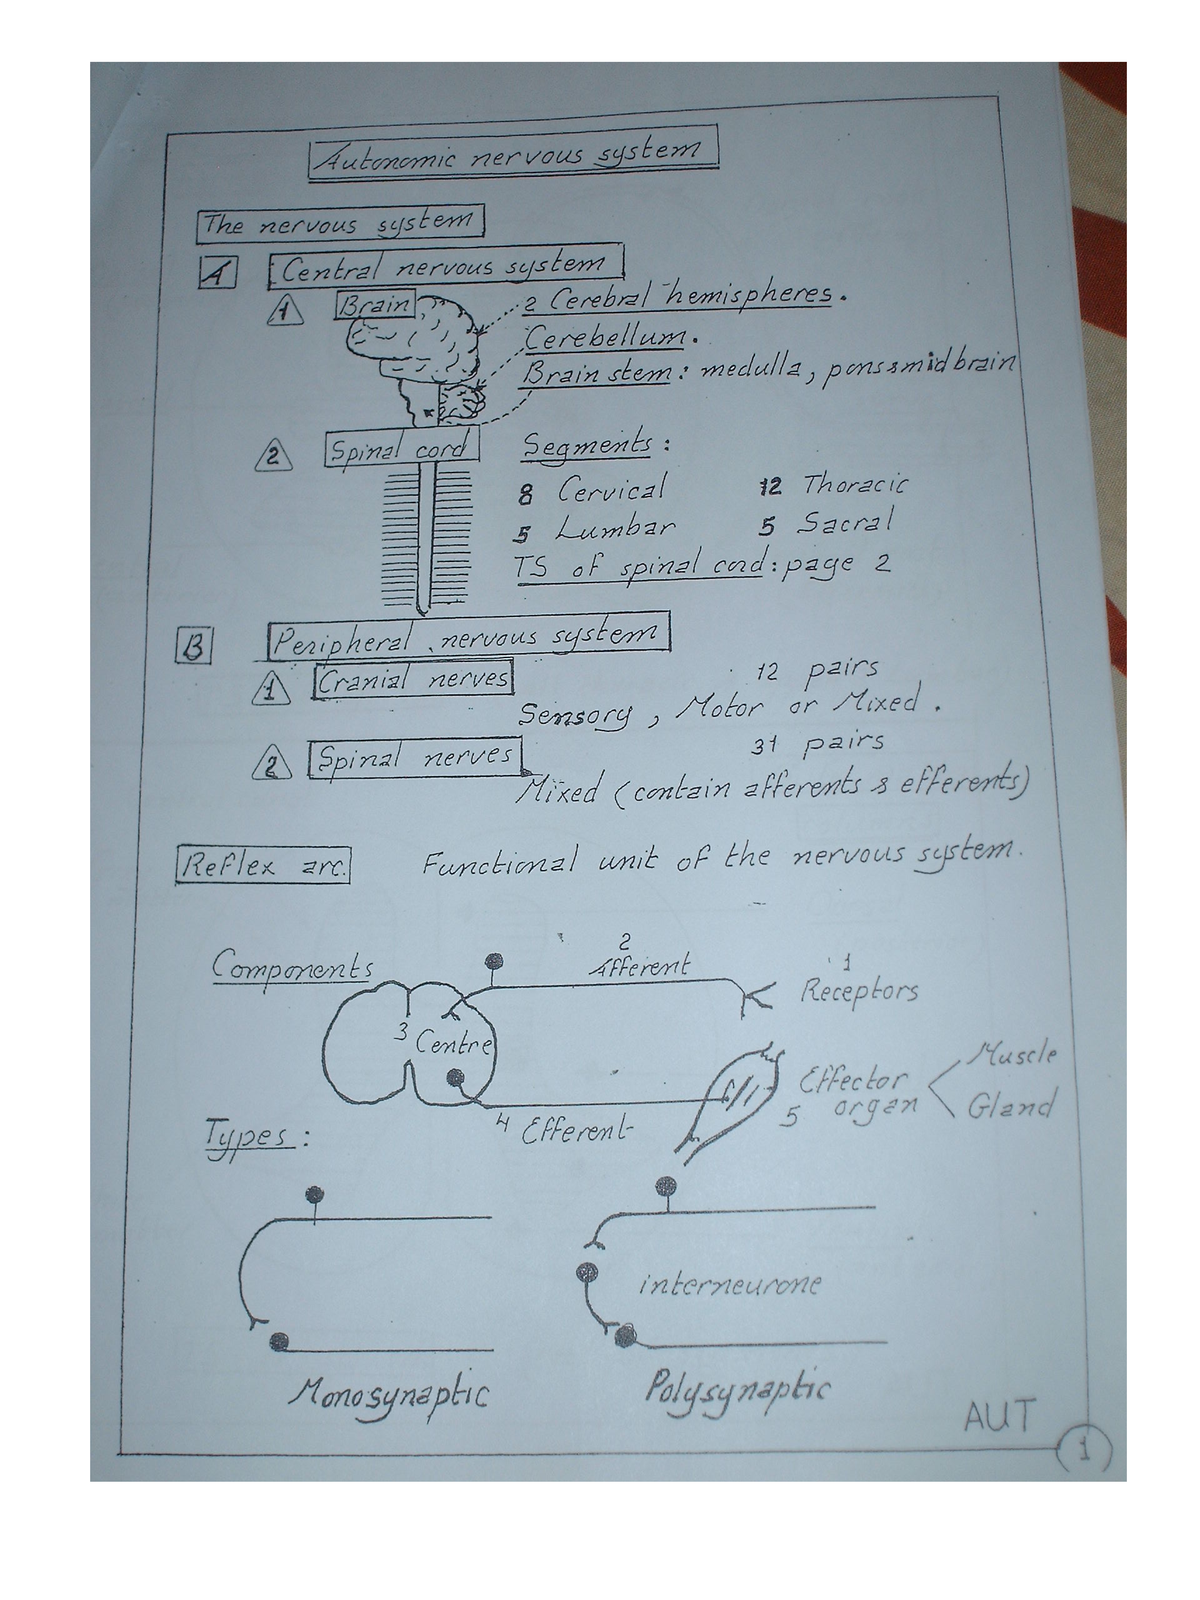 Autonomic nervous system
The nervous system
A Central nervous system
1 Brain
2 Cerebral hemispheres.
Cerebellum.
Brain stem: medulla, pons & midbrain
2 Spinal cord
Segments:
8 Cervical 12 Thoracic
5 Lumbar 5 Sacral
TS of spinal cord: page 2
B Peripheral nervous system
1 Cranial nerves 12 pairs
Sensory, Motor or Mixed.
2 Spinal nerves 31 pairs
Mixed (contain afferents & efferents)
Reflex arc. Functional unit of the nervous system.
Components
2
Afferent
1
Receptors
3 Centre
Effector organ
5
Muscle
Gland
4 Efferent
Types:
interneurone
Monosynaptic
Polysynaptic
AUT
1